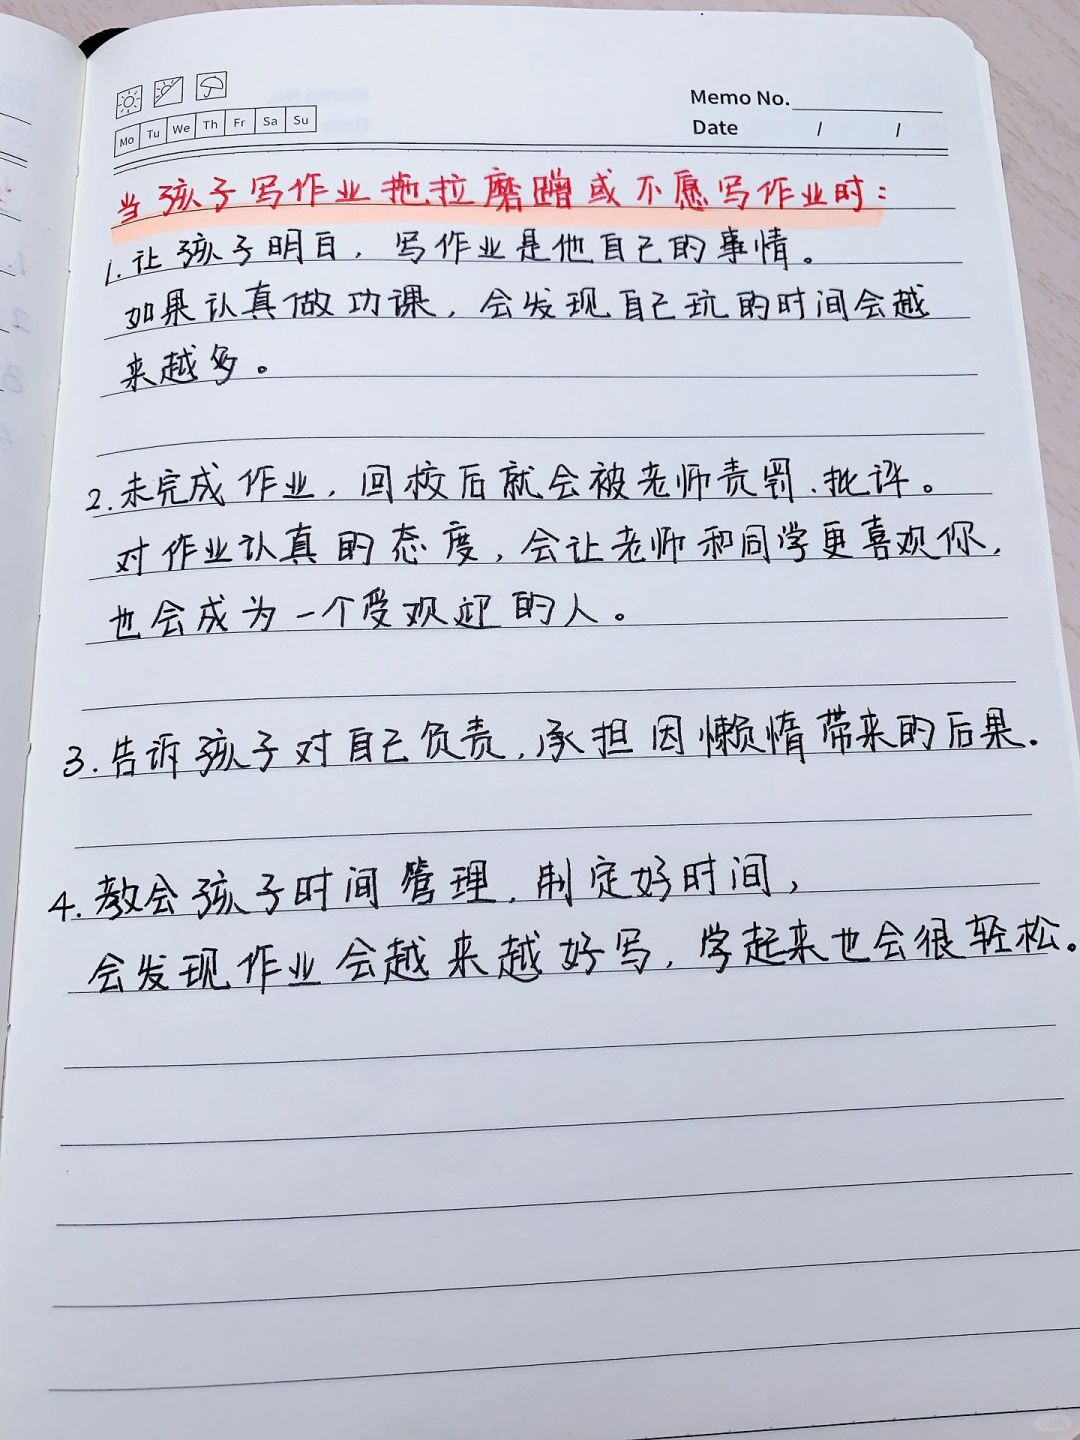 Memo No.
Date / /
Mo Tu We Th Fr Sa Su
当孩子写作业拖拉磨蹭或不愿写作业时：
1.让孩子明白，写作业是他自己的事情。
如果认真做功课，会发现自己玩的时间会越
来越多。
2.未完成作业，回校后就会被老师责罚、批评。
对作业认真的态度，会让老师和同学更喜欢你，
也会成为一个受欢迎的人。
3.告诉孩子对自己负责，承担因懒惰带来的后果.
4.教会孩子时间管理，制定好时间，
会发现作业会越来越好写，学起来也会很轻松。